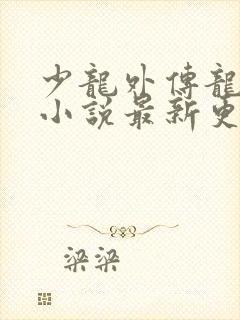 少龍外傳龍
小說最新更
梁梁